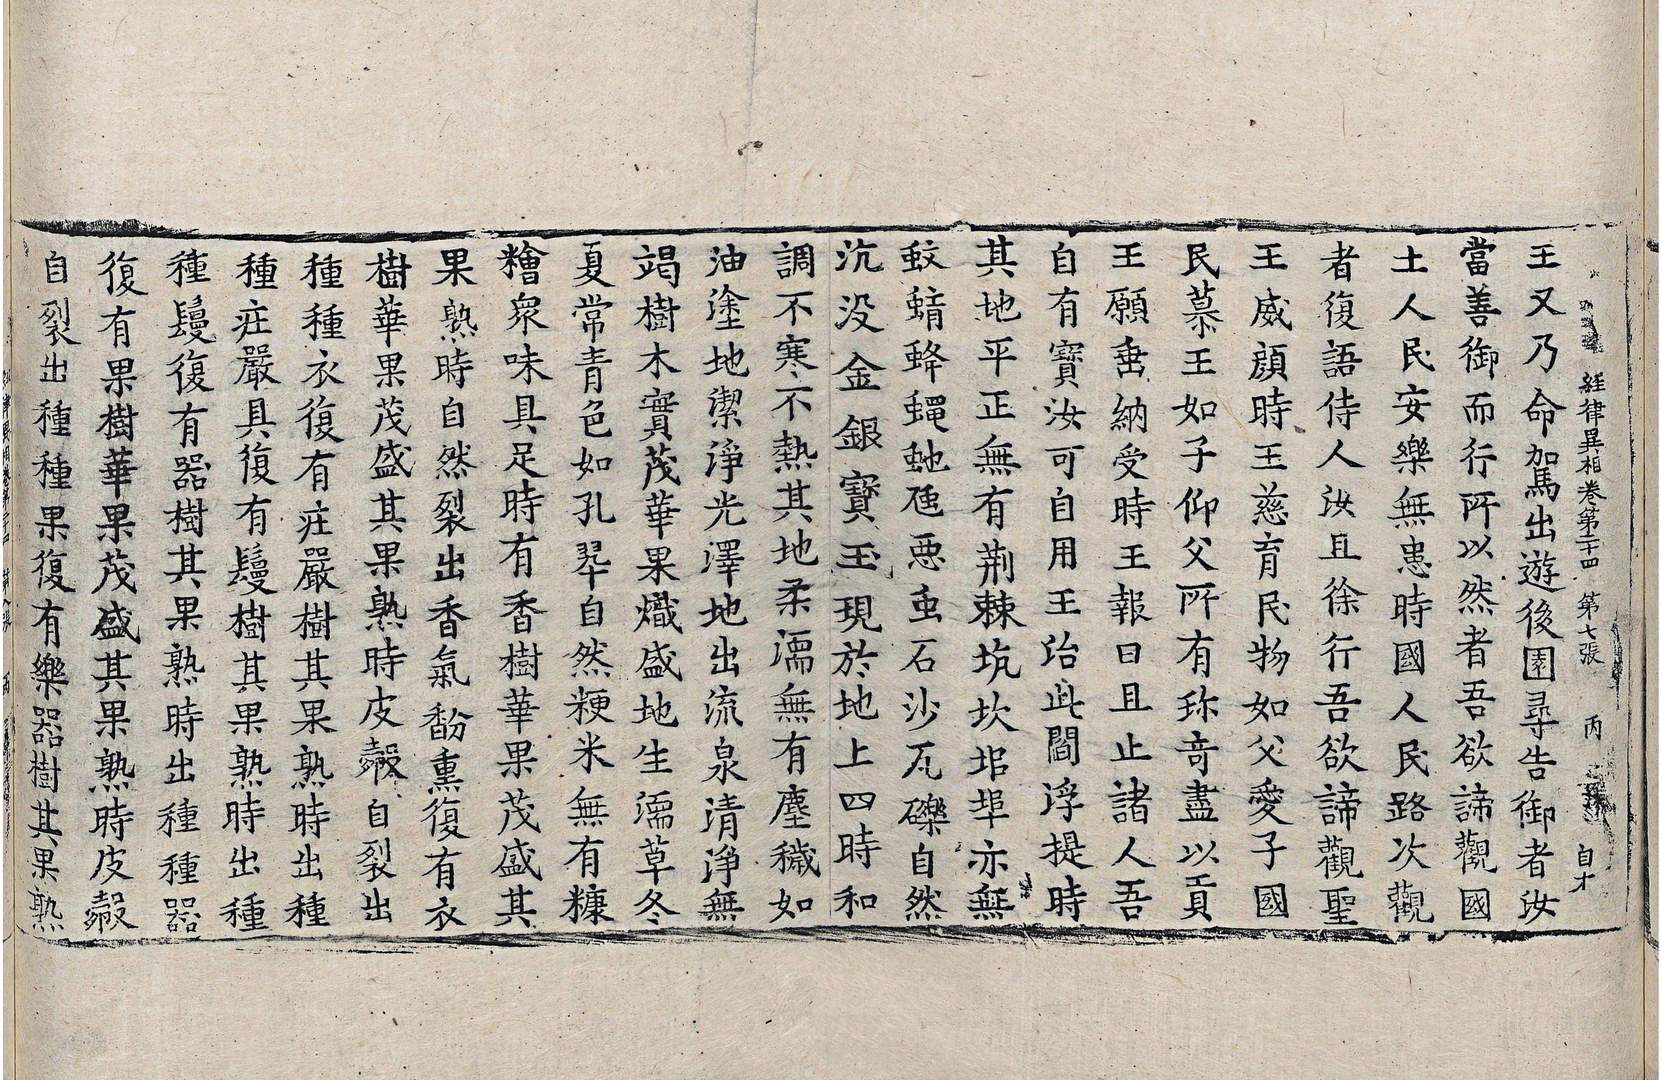 經律異相卷第二十四 第七張 丙 自才
王又乃命駕出遊後園尋告御者汝
當善御而行所以然者吾欲諦觀國
土人民安樂無患時國人民路次觀
者復語侍人汝且徐行吾欲諦觀聖
王威顏時王慈育民物如父愛子國
民慕王如子仰父所有珎奇盡以貢
王願垂納受時王報曰且止諸人吾
自有寶汝可自用王治此閻浮提時
其地平正無有荆棘坑坎埠阜亦無
蚊蜻蜂蝿虵虺惡虫石沙瓦礫自然
沉没金銀寶玉現於地上四時和
調不寒不熱其地柔濡無有塵穢如
油塗地潔淨光澤地出流泉清淨無
竭樹木實茂華果熾盛地生濡草冬
夏常青色如孔翠自然粳米無有糠
糩衆味具足時有香樹華果茂盛其
果熟時自然裂出香氣馚熏復有衣
樹華果茂盛其果熟時皮㲉自裂出
種種衣復有莊嚴樹其果熟時出種
種莊嚴具復有鬘樹其果熟時出種
種鬘復有器樹其果熟時出種種器
復有果樹華果茂盛其果熟時皮㲉
自裂出種種果復有樂器樹其果熟